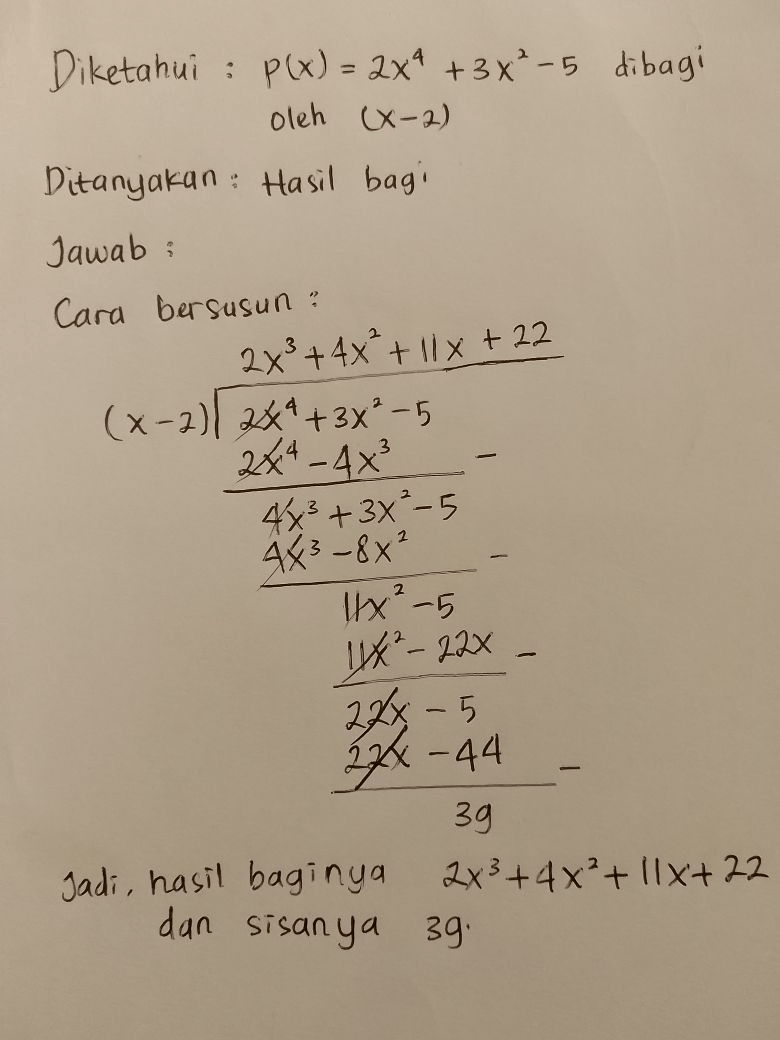 Diketahui : p(x) = 2x⁴ + 3x² - 5 dibagi
oleh (x-2)
Ditanyakan : Hasil bagi
Jawab :
Cara bersusun :
2x³ + 4x² + 11x + 22
(x-2) 2x⁴ + 3x² - 5
2x⁴ - 4x³ -
4x³ + 3x² - 5
4x³ - 8x² -
11x² - 5
11x² - 22x -
22x - 5
22x - 44 -
39
Jadi, hasil baginya 2x³ + 4x² + 11x + 22
dan sisanya 39.